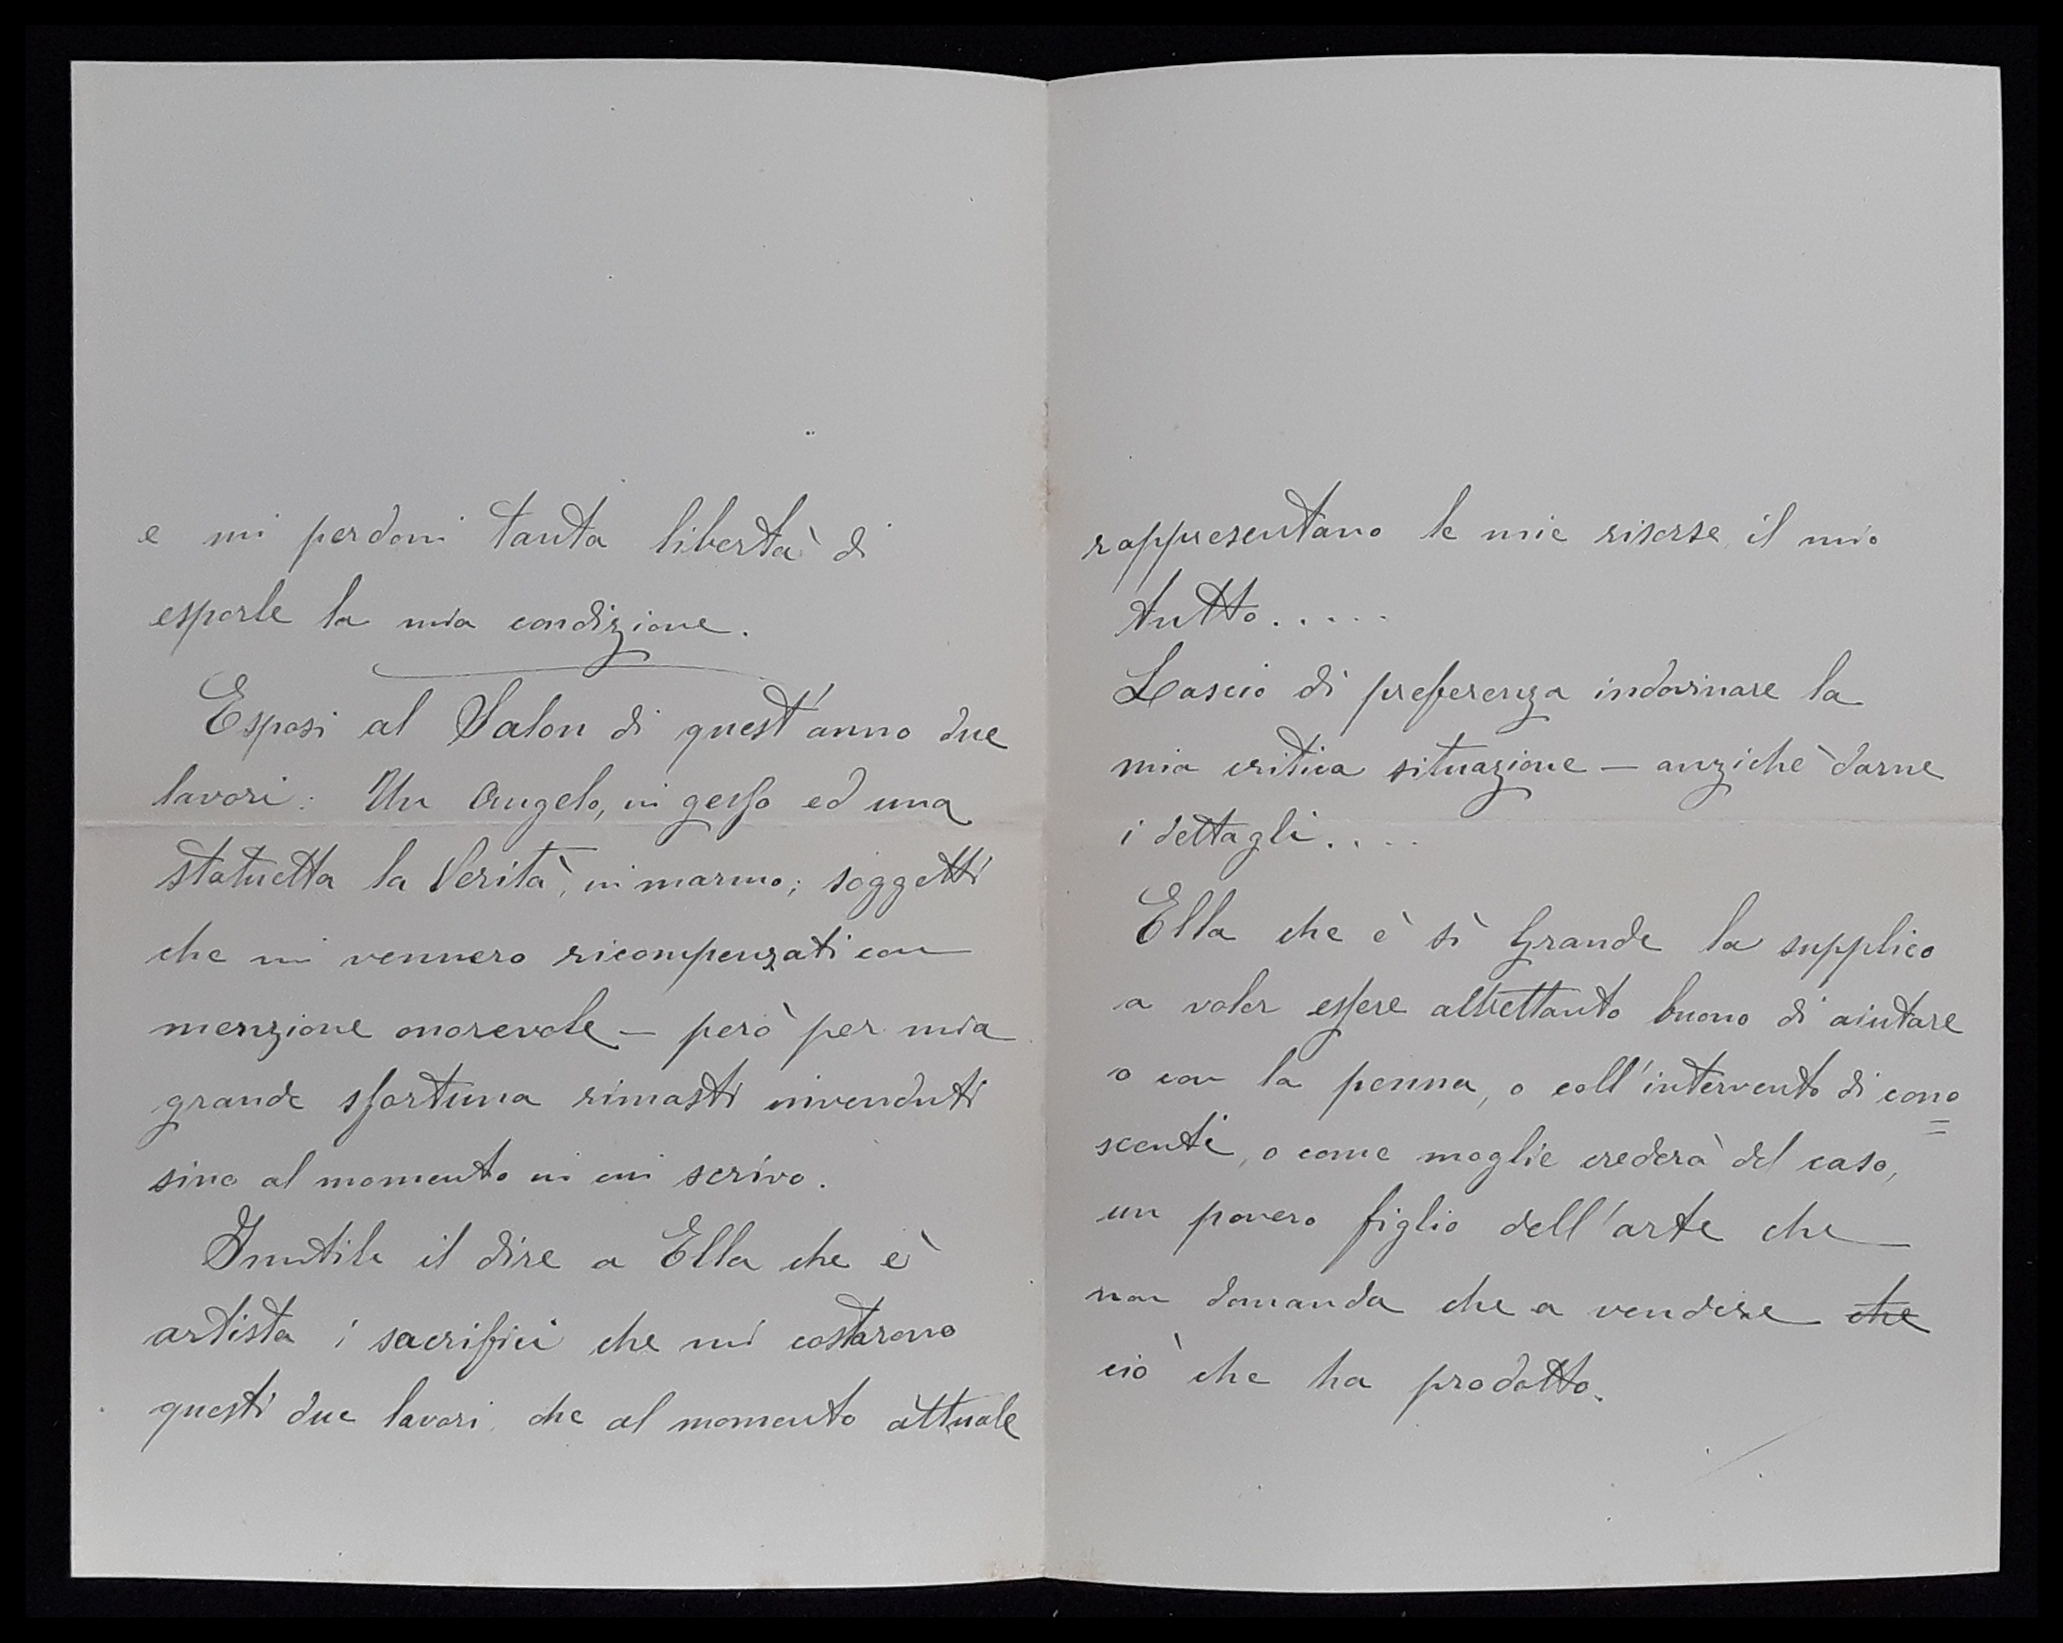 e mi perdoni tanta libertà di
esporle la mia condizione.
Esposi al Salon di quest'anno due
lavori: Un Angelo, in gesso ed una
statuetta la Verità, in marmo; soggetti
che mi vennero ricompenzati con
menzione onorevole — però per mia
grande sfortuna rimasti invenduti
sino al momento in cui scrivo.
Inutile il dire a Ella che è
artista i sacrifici che mi costarono
questi due lavori, che al momento attuale
rappresentano le mie risorse, il mio
tutto.....
Lascio di preferenza indovinare la
mia critica situazione — anziché darne
i dettagli....
Ella che è sì Grande la supplico
a voler essere altrettanto buono di aiutare
o con la penna, o coll'intervento di cono=
scenti, o come meglie crederà del caso,
un povero figlio dell'arte che
non domanda che a vendere che
ciò che ha prodotto.